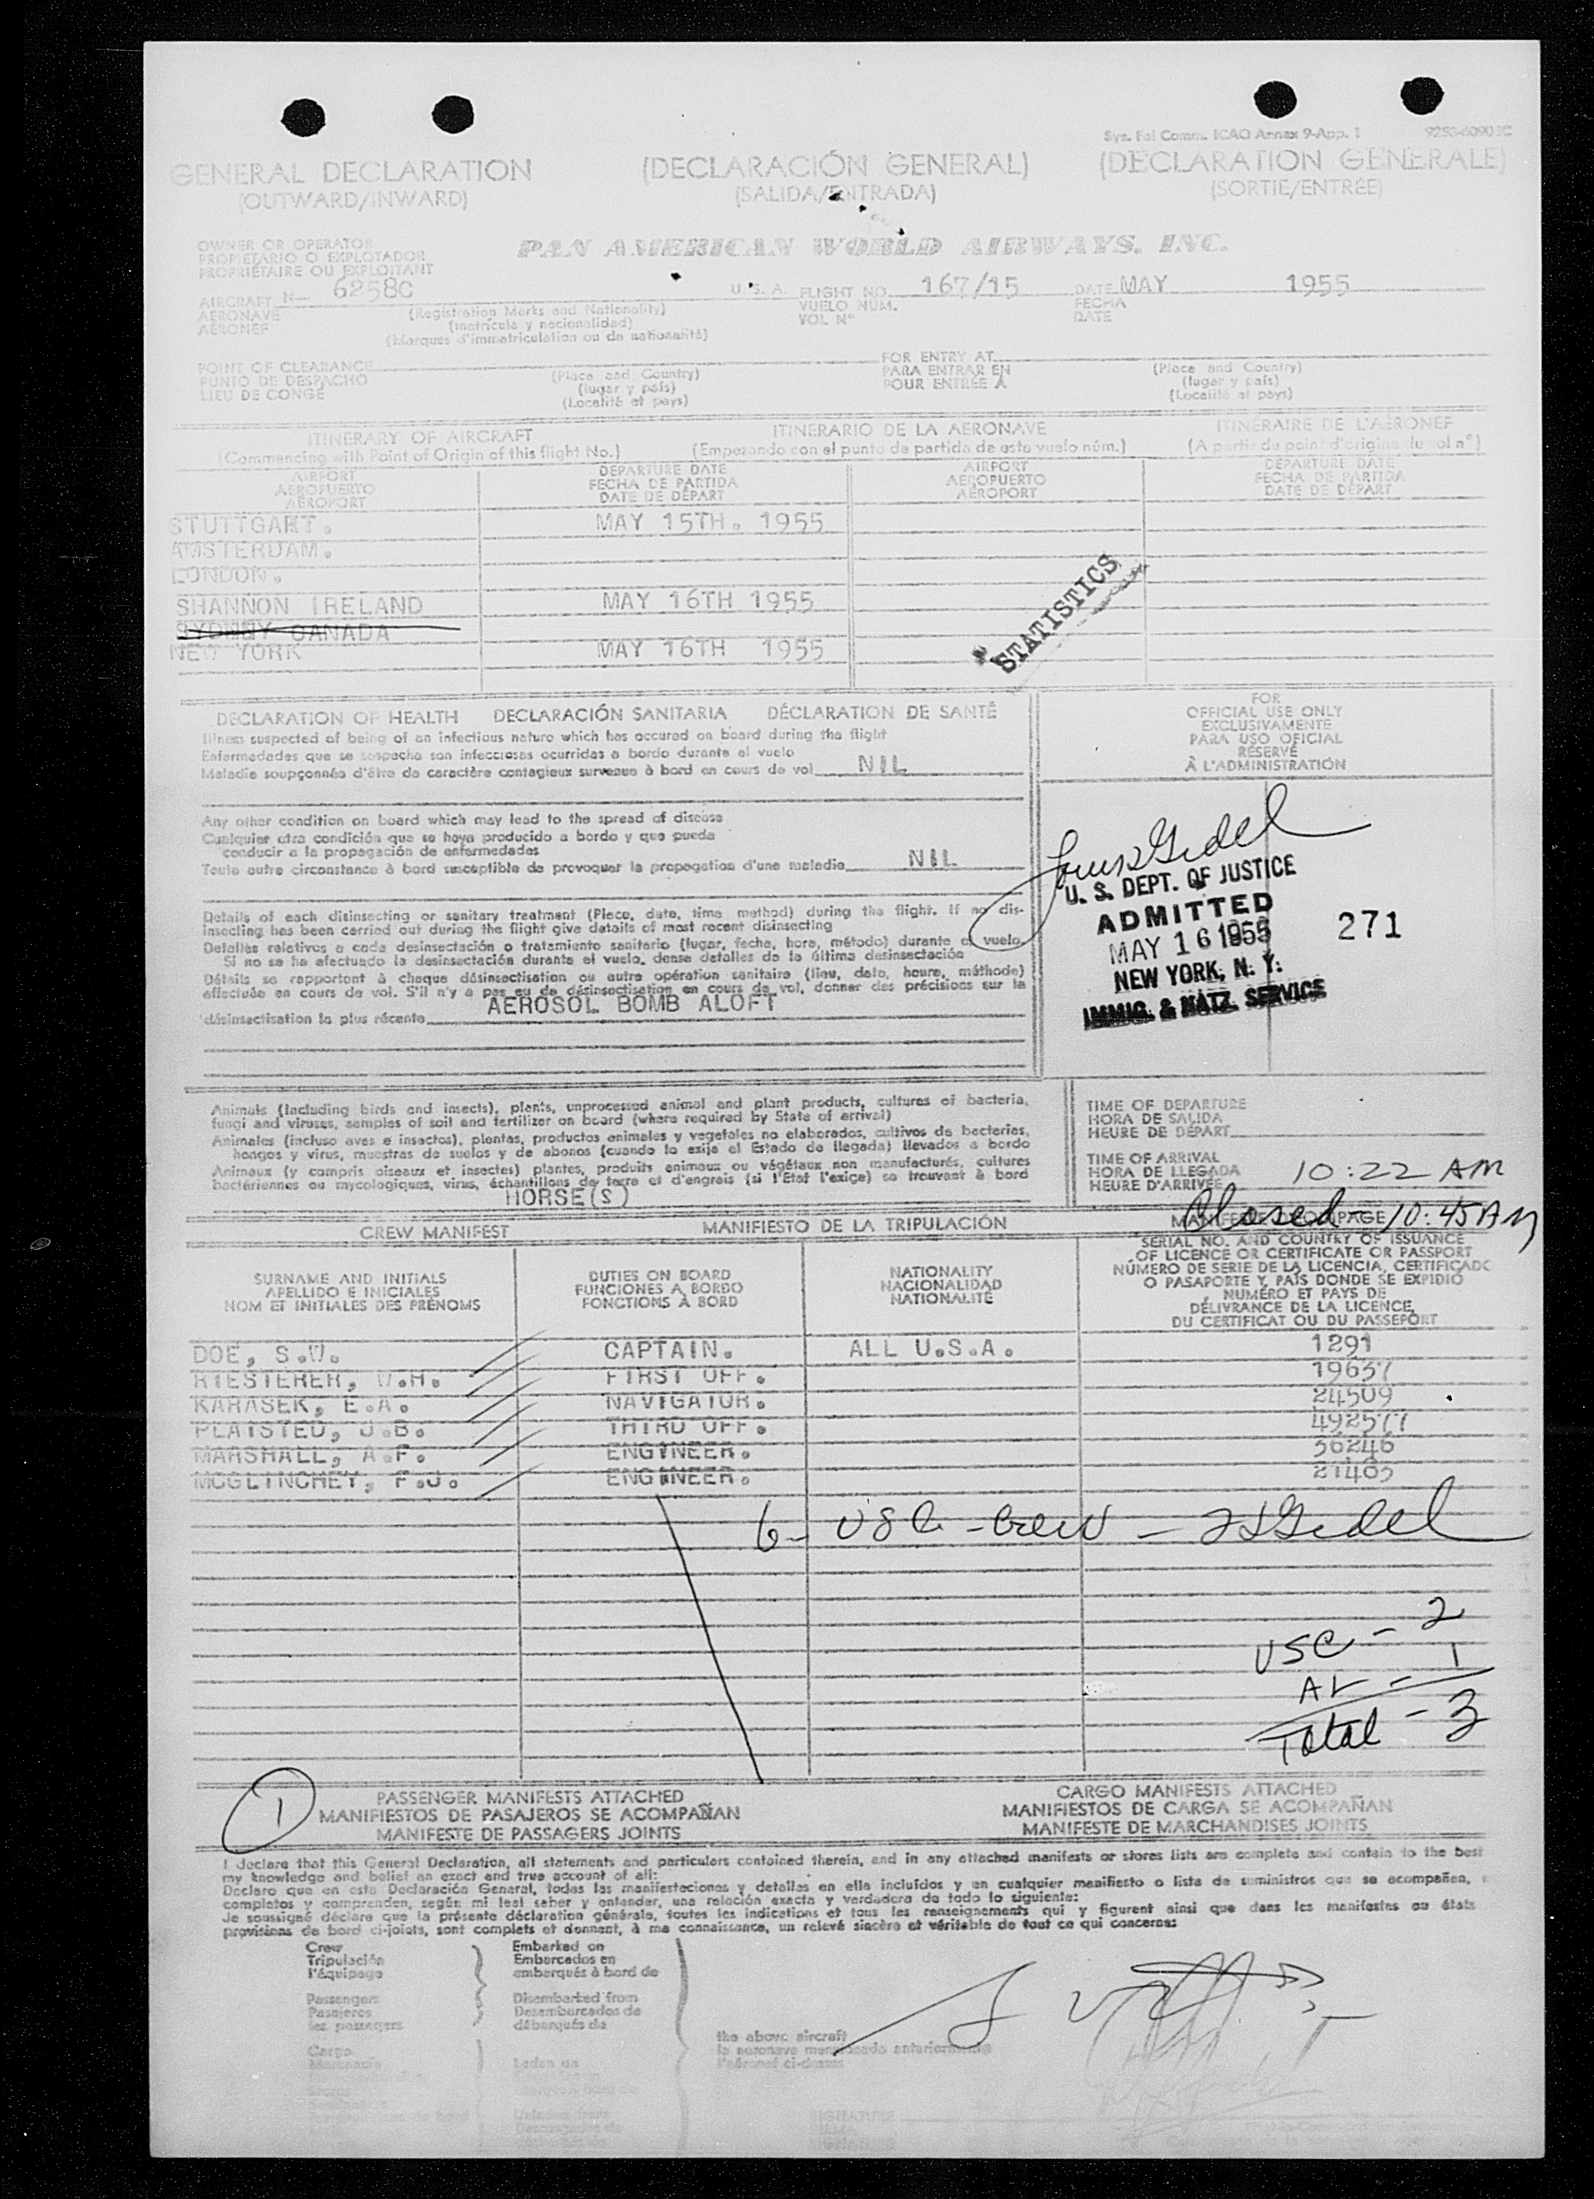 Sys. Fal Comm. ICAO Annex 9-App. 1
GENERAL DECLARATION (DECLARACIÓN GENERAL) (DECLARATION GENERALE)
(OUTWARD/INWARD) (SALIDA/ENTRADA) (SORTIE/ENTRÉE)
OWNER OR OPERATOR
PROPIETARIO O EXPLOTADOR
PROPRIÉTAIRE OU EXPLOITANT
PAN AMERICAN WORLD AIRWAYS, INC.
AIRCRAFT N— 6258C U. S. A. FLIGHT NO. 167/15 DATE MAY 1955
AERONAVE (Registration Marks and Nationality) VUELO NUM. FECHA
AÉRONEF (matrícula y nacionalidad) VOL N° DATE
(Marques d'immatriculation ou de nationalité)
POINT OF CLEARANCE FOR ENTRY AT
PUNTO DE DESPACHO (Place and Country) PARA ENTRAR EN (Place and Country)
LIEU DE CONGÉ (lugar y país) POUR ENTRÉE À (lugar y país)
(Localité et pays) (Localité et pays)
ITINERARY OF AIRCRAFT ITINERARIO DE LA AERONAVE ITINERAIRE DE L'AÉRONEF
(Commencing with Point of Origin of this flight No.) (Empezando con el punto de partida de este vuelo núm.) (A partir du point d'origine du vol n°)
AIRPORT DEPARTURE DATE AIRPORT DEPARTURE DATE
AEROPUERTO FECHA DE PARTIDA AEROPUERTO FECHA DE PARTIDA
AÉROPORT DATE DE DÉPART AÉROPORT DATE DE DÉPART
STUTTGART. MAY 15TH. 1955
AMSTERDAM.
LONDON.
SHANNON IRELAND MAY 16TH 1955
SYDNEY CANADA
NEW YORK MAY 16TH 1955
STATISTICS
DECLARATION OF HEALTH DECLARACIÓN SANITARIA DÉCLARATION DE SANTÉ
Illness suspected of being of an infectious nature which has occured on board during the flight
Enfermedades que se sospecha son infecciosas ocurridas a bordo durante el vuelo
Maladie soupçonnée d'être de caractère contagieux survenue à bord en cours de vol NIL
FOR
OFFICIAL USE ONLY
EXCLUSIVAMENTE
PARA USO OFICIAL
RÉSERVÉ
À L'ADMINISTRATION
Any other condition on board which may lead to the spread of disease
Cualquier otra condición que se haya producido a bordo y que pueda
conducir a la propagación de enfermedades
Toute autre circonstance à bord susceptible de provoquer la propagation d'une maladie NIL
Details of each disinsecting or sanitary treatment (Place, date, time method) during the flight. If no dis-
insecting has been carried out during the flight give details of most recent disinsecting
Detalles relativos a cada desinsectación o tratamiento sanitario (lugar, fecha, hora, método) durante el vuelo.
Si no se ha efectuado la desinsectación durante el vuelo, dense detalles de la última desinsectación
Détails se rapportant à chaque désinsectisation ou autre opération sanitaire (lieu, date, heure, méthode)
effectuée en cours de vol. S'il n'y a pas eu de désinsectisation en cours de vol, donner des précisions sur la
désinsectisation la plus récente AEROSOL BOMB ALOFT
U. S. DEPT. OF JUSTICE
ADMITTED
MAY 16 1955 271
NEW YORK, N. Y.
IMMIG. & NATZ. SERVICE
Animals (including birds and insects), plants, unprocessed animal and plant products, cultures of bacteria,
fungi and viruses, samples of soil and fertilizer on board (where required by State of arrival)
Animales (incluso aves e insectos), plantas, productos animales y vegetales no elaborados, cultivos de bacterias,
hongos y virus, muestras de suelos y de abonos (cuando lo exija el Estado de llegada) llevados a bordo
Animaux (y compris oiseaux et insectes) plantes, produits animaux ou végétaux non manufacturés, cultures
bactériennes ou mycologiques, virus, échantillons de terre et d'engrais (si l'État l'exige) se trouvant à bord
HORSE(S)
TIME OF DEPARTURE
HORA DE SALIDA
HEURE DE DÉPART
TIME OF ARRIVAL
HORA DE LLEGADA 10:22 AM
HEURE D'ARRIVÉE
Closed - 10:45 AM
CREW MANIFEST MANIFIESTO DE LA TRIPULACIÓN
SURNAME AND INITIALS
APELLIDO E INICIALES
NOM ET INITIALES DES PRÉNOMS
DUTIES ON BOARD
FUNCIONES A BORDO
FONCTIONS À BORD
NATIONALITY
NACIONALIDAD
NATIONALITÉ
SERIAL NO. AND COUNTRY OF ISSUANCE
OF LICENCE OR CERTIFICATE OR PASSPORT
NÚMERO DE SERIE DE LA LICENCIA, CERTIFICADO
O PASAPORTE Y PAÍS DONDE SE EXPIDIÓ
NUMÉRO ET PAYS DE
DÉLIVRANCE DE LA LICENCE,
DU CERTIFICAT OU DU PASSEPORT
DOE, S.W. CAPTAIN. ALL U.S.A. 1291
RIESTERER, W.H. FIRST OFF. 19637
KARASEK, E.A. NAVIGATOR. 24509
PLAISTED, J.B. THIRD OFF. 492577
MARSHALL, A.F. ENGINEER. 36246
MCGLINCHEY, F.J. ENGINEER. 21403
6 - USC - Crew -
USC - 2
AL - 1
Total - 3
1
PASSENGER MANIFESTS ATTACHED CARGO MANIFESTS ATTACHED
MANIFIESTOS DE PASAJEROS SE ACOMPAÑAN MANIFIESTOS DE CARGA SE ACOMPAÑAN
MANIFESTE DE PASSAGERS JOINTS MANIFESTE DE MARCHANDISES JOINTS
I declare that this General Declaration, all statements and particulars contained therein, and in any attached manifests or stores lists are complete and contain to the best
my knowledge and belief an exact and true account of all:
Declaro que en esta Declaración General, todas las manifestaciones y detalles en ella incluídos y en cualquier manifiesto o lista de suministros que se acompañen,
completos y comprenden, según mi leal saber y entender, una relación exacta y verdadera de todo lo siguiente:
Je soussigné déclare que la présente déclaration générale, toutes les indications et tous les renseignements qui y figurent ainsi que dans les manifestes ou états
provisions de bord ci-joints, sont complets et donnent, à ma connaissance, un relevé sincère et véritable de tout ce qui concerne:
Crew Embarked on
Tripulación Embarcados en
l'équipage embarqués à bord de
Passengers Disembarked from
Pasajeros Desembarcados de
les passagers débarqués de
the above aircraft
la aeronave mencionada anteriormente
l'aéronef ci-dessus
Cargo
Laden on